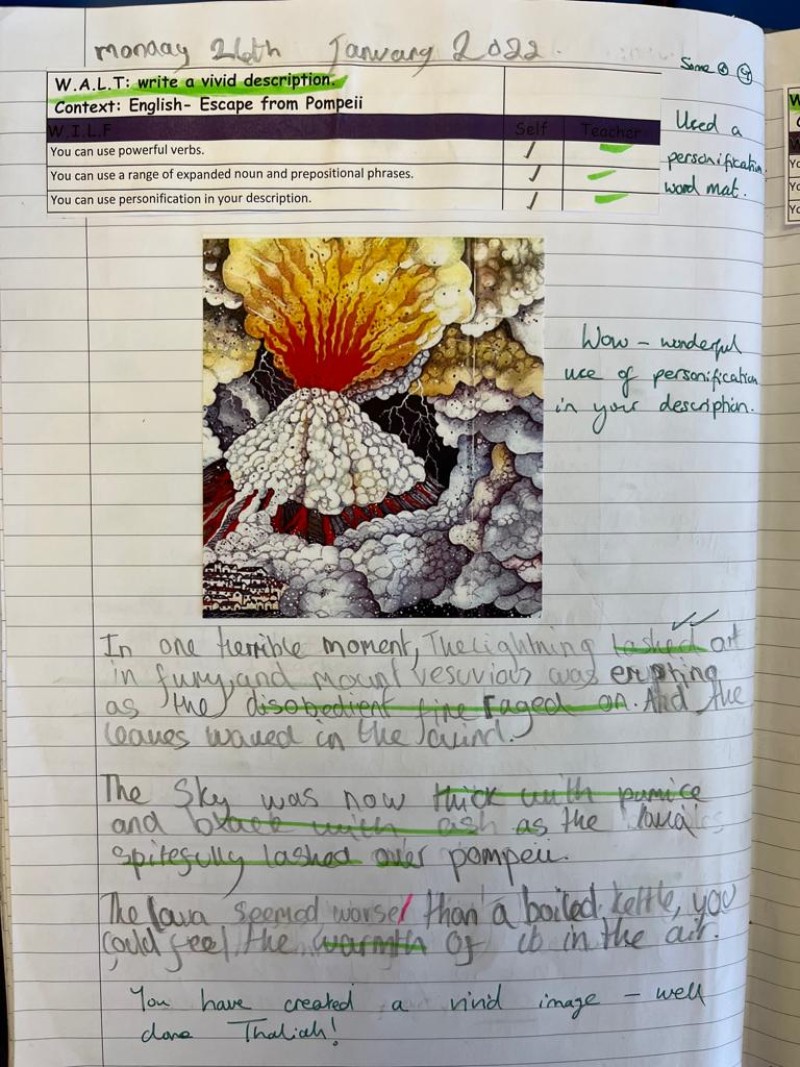 monday 26th January 2022.
Some
W.A.L.T: write a vivid description.
Context: English- Escape from Pompeii
W.I.L.F Self Teacher
You can use powerful verbs.
You can use a range of expanded noun and prepositional phrases.
You can use personification in your description.
Used a
personification
word mat.
Wow - wonderful
use of personification
in your description.
In one terrible moment, The Lightning lashed out
in fury, and mount vesuvious was erupting
as the disobedient fire raged on. And the
leaves waved in the wind.
The Sky was now thick with pumice
and black with ash as the lava
spitefully lashed over pompeii.
The lava seemed worse than a boiled kettle, you
could feel the warmth of it in the air.
You have created a vivid image - well
done Thaliah!